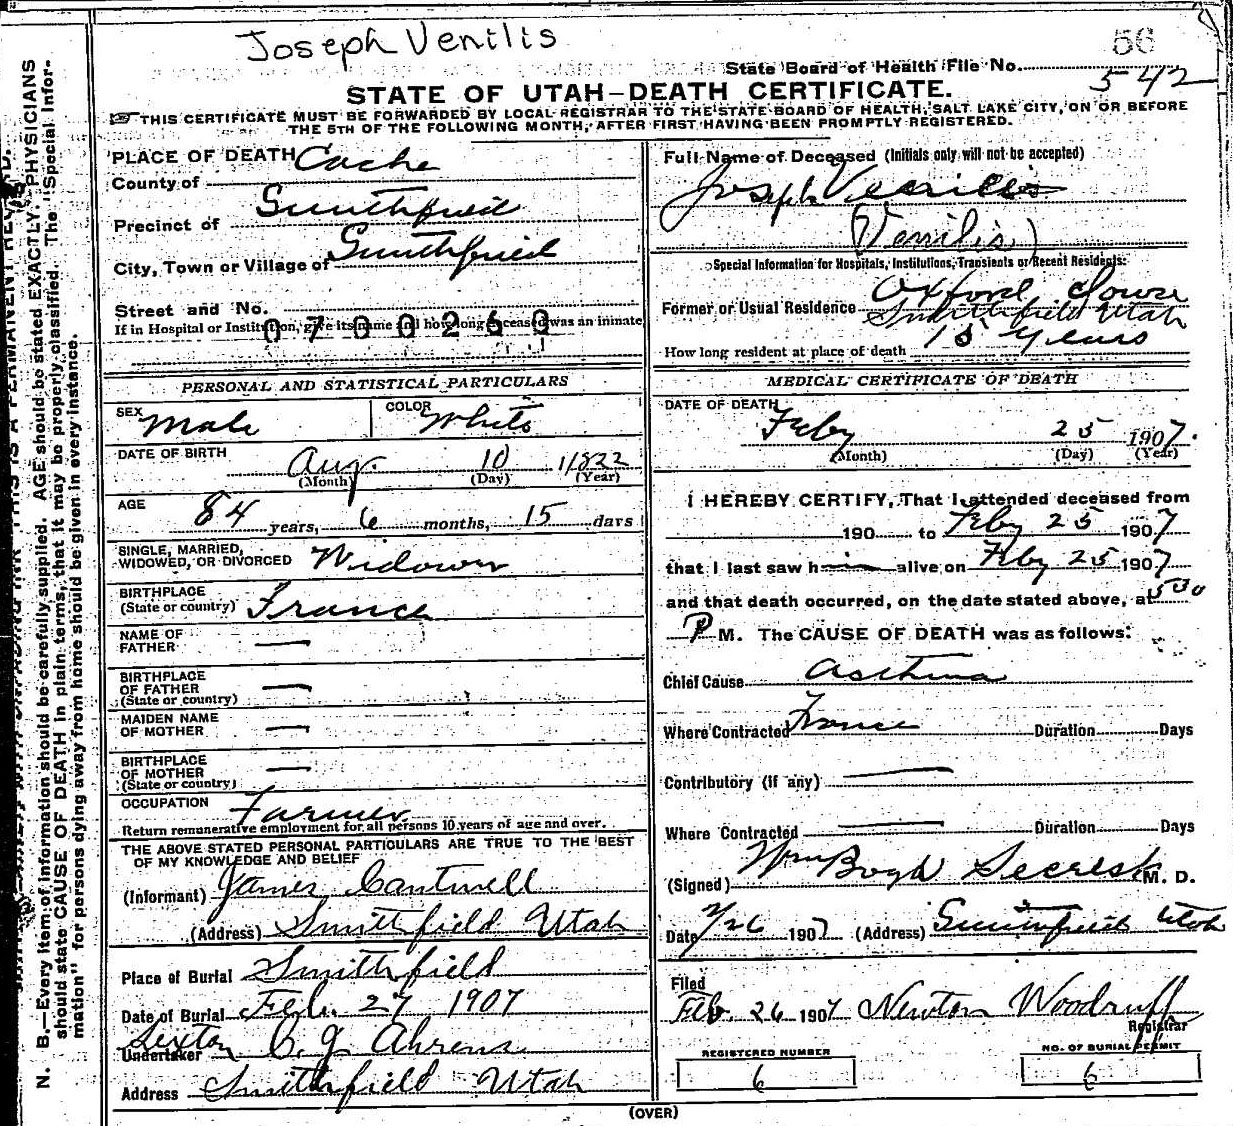 Joseph Venilis
56
State Board of Health File No. 542
STATE OF UTAH—DEATH CERTIFICATE.
THIS CERTIFICATE MUST BE FORWARDED BY LOCAL REGISTRAR TO THE STATE BOARD OF HEALTH, SALT LAKE CITY, ON OR BEFORE
THE 5TH OF THE FOLLOWING MONTH, AFTER FIRST HAVING BEEN PROMPTLY REGISTERED.
N. B.—Every item of information should be carefully supplied. AGE should be stated EXACTLY. PHYSICIANS
should state CAUSE OF DEATH in plain terms, that it may be properly classified. The "Special Infor-
mation" for persons dying away from home should be given in every instance.
THIS IS A PERMANENT
PLACE OF DEATH
County of Cache
Precinct of Smithfield
City, Town or Village of Smithfield
Street and No.
If in Hospital or Institution, give its name and how long deceased was an inmate
0700260
PERSONAL AND STATISTICAL PARTICULARS
SEX Male COLOR White
DATE OF BIRTH Aug. 10 1822
(Month) (Day) (Year)
AGE 84 years, 6 months, 15 days
SINGLE, MARRIED,
WIDOWED, OR DIVORCED Widower
BIRTHPLACE
(State or country) France
NAME OF
FATHER —
BIRTHPLACE
OF FATHER —
(State or country)
MAIDEN NAME
OF MOTHER —
BIRTHPLACE
OF MOTHER —
(State or country)
OCCUPATION Farmer
Return remunerative employment for all persons 10 years of age and over.
THE ABOVE STATED PERSONAL PARTICULARS ARE TRUE TO THE BEST
OF MY KNOWLEDGE AND BELIEF
(Informant) James Cantwell
(Address) Smithfield Utah
Place of Burial Smithfield
Date of Burial Feb. 27 1907
Sexton
Undertaker C. J. Ahrens
Address Smithfield Utah
Full Name of Deceased (Initials only will not be accepted)
Joseph
(Venilis)
Special Information for Hospitals, Institutions, Transients or Recent Residents:
Oxford
Former or Usual Residence Smithfield Utah
How long resident at place of death 15 Years
MEDICAL CERTIFICATE OF DEATH
DATE OF DEATH
Feby 25 1907.
(Month) (Day) (Year)
I HEREBY CERTIFY, That I attended deceased from
190 to Feby 25 1907
that I last saw him alive on Feby 25 1907
and that death occurred, on the date stated above, at 5 30
P M. The CAUSE OF DEATH was as follows:
Chief Cause Asthma
Where Contracted France Duration Days
Contributory (if any) —
Where Contracted — Duration Days
(Signed) Wm Bogh M. D.
Date 2/26 1907 (Address) Smithfield Utah
Filed
Feb. 26 1907 Newton Woodruff
Registrar
REGISTERED NUMBER
6
NO. OF BURIAL PERMIT
6
(OVER)